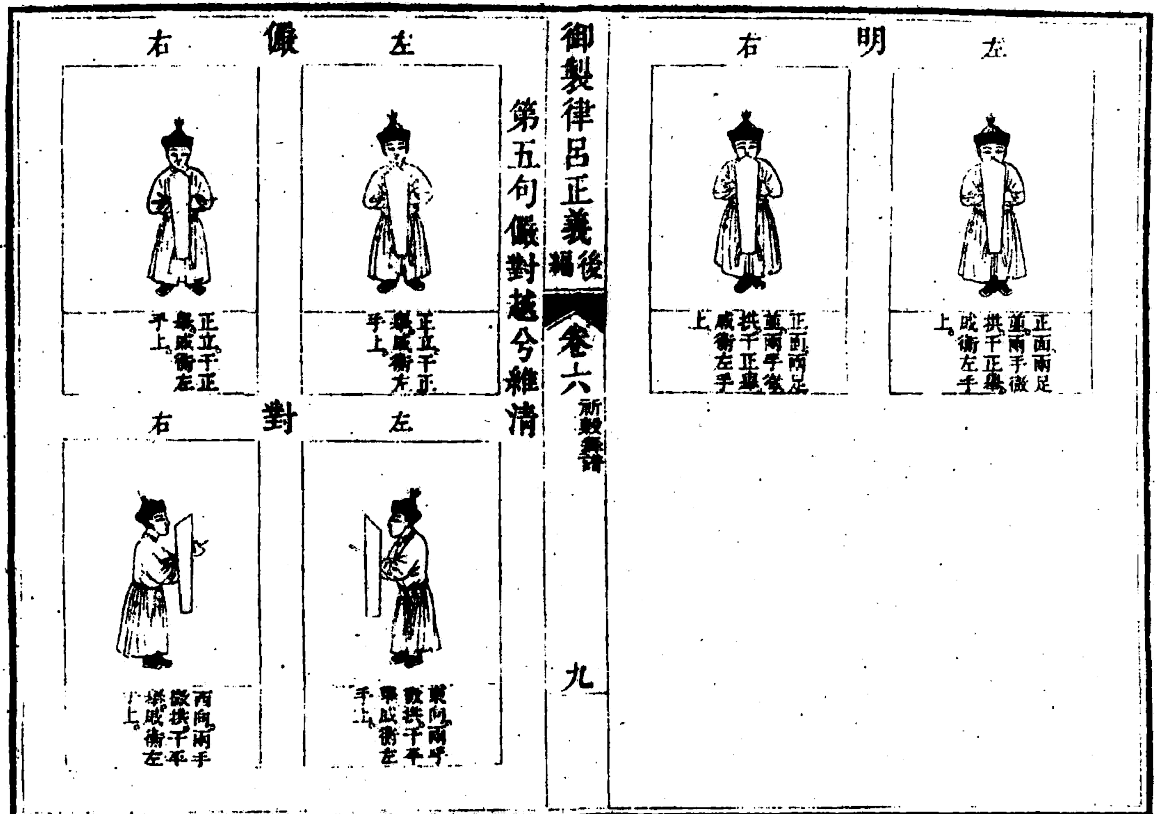 明
左
正面兩足
並兩手微
拱干正舉
戚衡左手
上
右
正面兩足
並兩手微
拱干正舉
戚衡左手
上
御製律呂正義後編
卷六
祈穀舞譜
九
第五句儼對越兮維清
儼
左
正立干正
舉戚衡左
手上
右
正立干正
舉戚衡左
手上
對
左
東向兩手
微拱干平
舉戚衡左
手上
右
西向兩手
微拱干平
舉戚衡左
手上